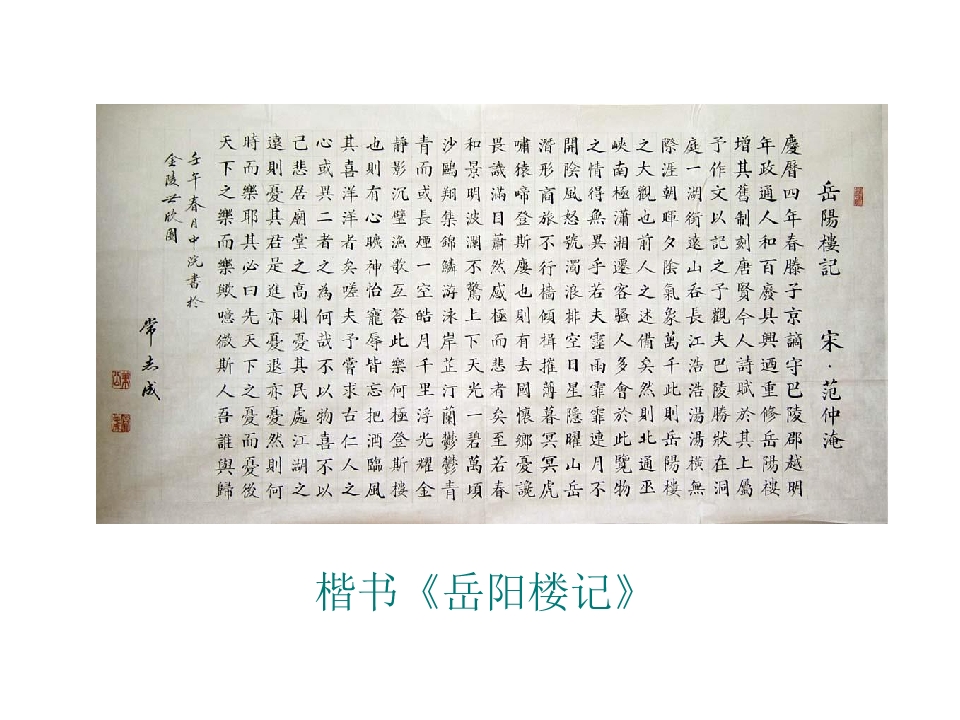 岳陽樓記 宋·范仲淹
慶曆四年春滕子京謫守巴陵郡越明
年政通人和百廢具興迺重修岳陽樓
增其舊制刻唐賢今人詩賦於其上屬
予作文以記之予觀夫巴陵勝狀在洞
庭一湖銜遠山吞長江浩浩湯湯橫無
際涯朝暉夕陰氣象萬千此則岳陽樓
之大觀也前人之述備矣然則北通巫
峽南極瀟湘遷客騷人多會於此覽物
之情得無異乎若夫霪雨霏霏連月不
開陰風怒號濁浪排空日星隱曜山岳
潛形商旅不行檣傾楫摧薄暮冥冥虎
嘯猿啼登斯樓也則有去國懷鄉憂讒
畏譏滿目蕭然感極而悲者矣至若春
和景明波瀾不驚上下天光一碧萬頃
沙鷗翔集錦鱗游泳岸芷汀蘭鬱鬱青
青而或長煙一空皓月千里浮光耀金
靜影沉璧漁歌互答此樂何極登斯樓
也則有心曠神怡寵辱皆忘把酒臨風
其喜洋洋者矣嗟夫予嘗求古仁人之
心或異二者之為何哉不以物喜不以
己悲居廟堂之高則憂其民處江湖之
遠則憂其君是進亦憂退亦憂然則何
時而樂耶其必曰先天下之憂而憂後
天下之樂而樂歟噫微斯人吾誰與歸
壬午春月中浣書於
金陵欣園
常志成
楷书《岳阳楼记》